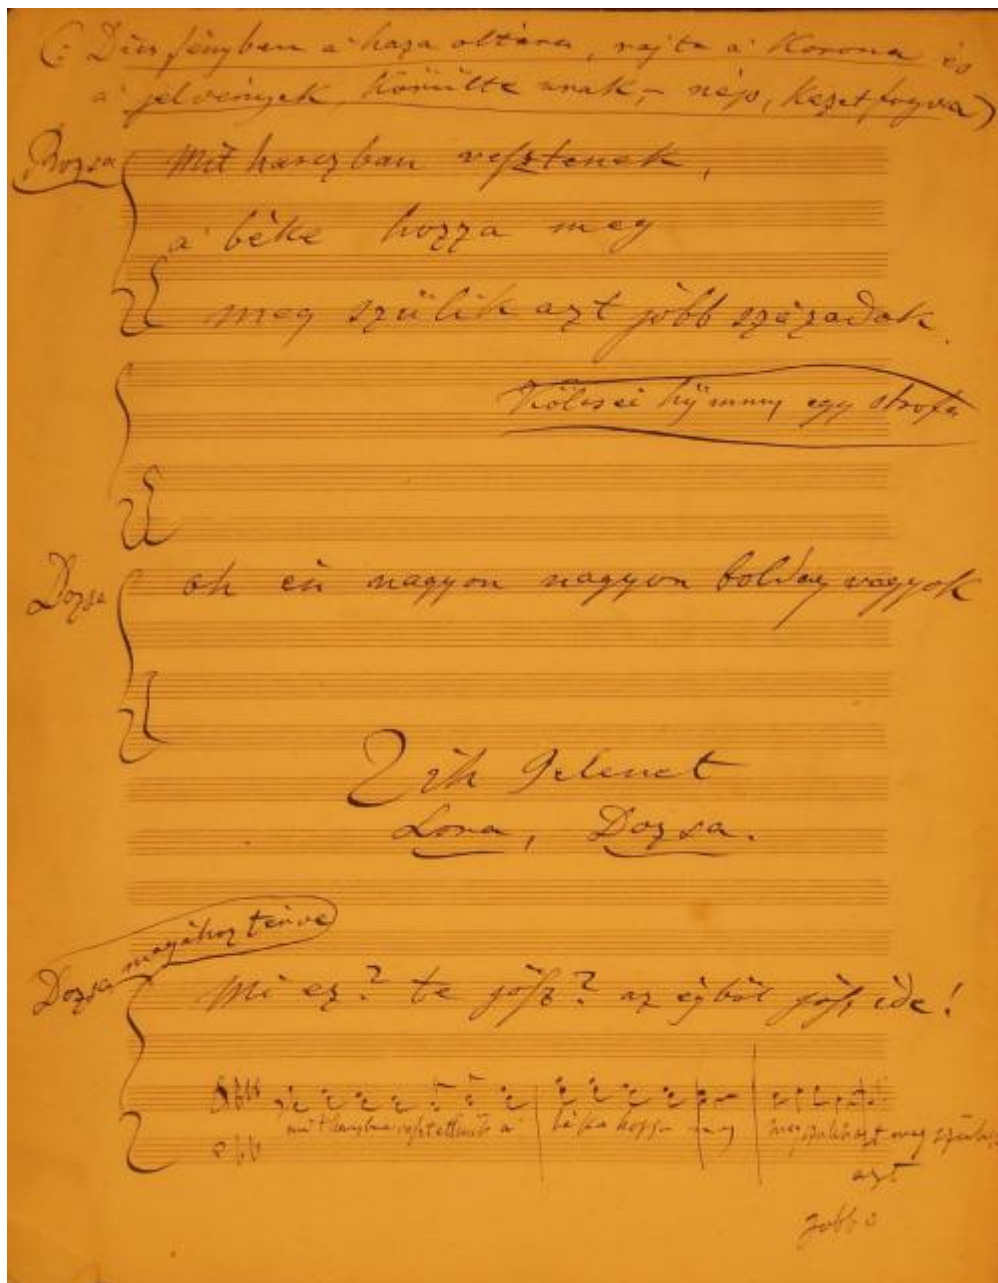 (: Dísz fényben a' haza oltára, rajta a' Korona és
a' jelvények, körülte urak, – nép, kezet fogva)
Rozsa Mit harczban vesztenek,
a' béke hozza meg
meg szülik azt jobb századok.
Kölcsei hymnus egy strofa
Dozsa oh én nagyon nagyon boldog vagyok
2ik Jelenet
Lora, Dozsa.
Dozsa magához térve
Mi ez? te jösz? az égből jösz ide!
mit harczban vesztettünk a béke hozza meg meg szülik azt meg szülik
azt
jobb s